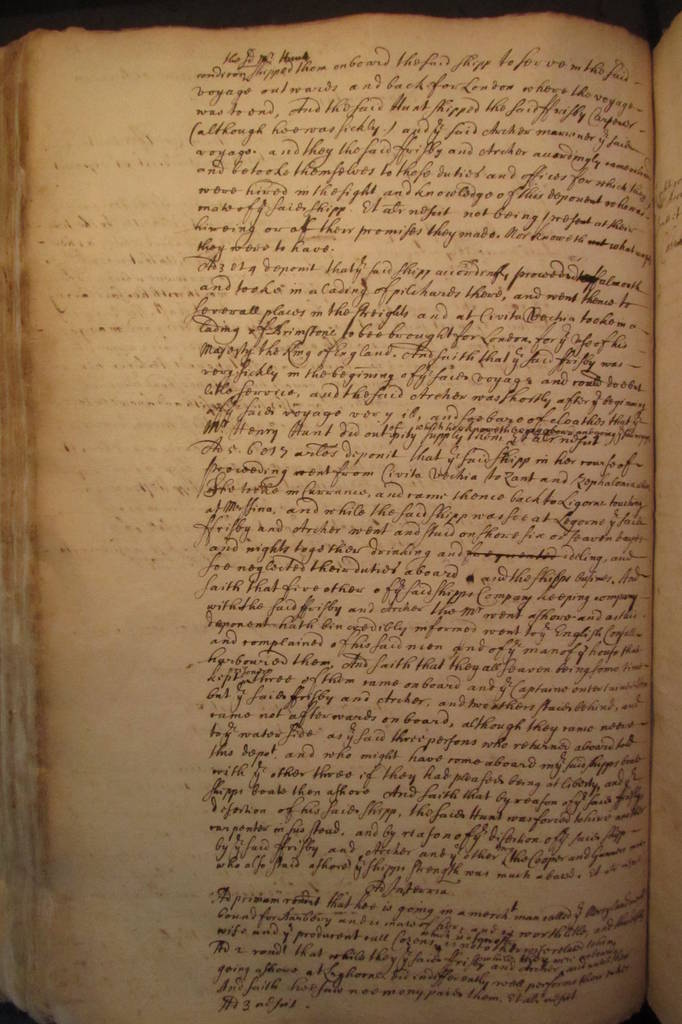 the sd mr Hunt
condicon shipped them onboard the said shipp to serve in the said
voyage outwards and back for London where the voyage
was to end, And the said Hunt shipped the said ffrisby Carpenter
(although hee was sickly) and ye said Archer marriner ye said
voyage. and they the said ffrisby and Archer accordingly came
and betooke themselves to those duties and offices for which they
were hired in the sight and knowledge of this deponent who was
mate of ye said shipp. Et alr nescit not being present at their
hireing or at their promises they made. Nor knoweth what wages
they were to have.
Ad 3 et 4 deponit that ye said shipp accordingly proceeded to ffalmouth
and tooke in a lading of pilchards there, and went thence to
severall places in the streights and at Civita Vechia tooke in a
lading of Brimstone to bee brought for London for ye use of his
Majesty the King of England. And saith that ye said ffrisby was
very sickly in the beginning of ye said voyage and could doe but
litle service, and the said Archer was shortly after ye beginning
of ye said voyage very ill, and soe bare of cloathes that ye
Mr Henry Hunt did out of pity supply them, Et alr nescit
Ad 5. 6 et 7 arlos deponit that ye said shipp in her course of
proceeding went from Civita Vechia to Zant and Zephalonia where
she tooke in Currance, and came thence back to Ligorne touching
at Messina, and while the said shipp was soe at Legorne ye said
ffrisby and Archer went and staid on shore six or seaven dayes
and nights together drinking and frequented idling, and
soe neglected their duties aboard and the shipps busines. And
saith that five other of ye said shipps Company keeping company
with the said ffrisby and Archer the Mr went ashore and as this
deponent hath bin credibly informed went to ye English Consull
and complained of his said men and of ye man of ye house that
harboured them, And saith that they all seaven being some time
kept three of them came onboard and ye Captaine entertained them
but ye said ffrisby and Archer, and two others staied behind, and
came not afterwards on board, although they came neere
to ye water side as ye said three persons who returned aboard told
this depot, and who might have come aboard in ye said shipps boate
with ye other three if they had pleased being at liberty, and ye
shipps boate then ashore And saith that by reason of ye said ffrisbys
desertion of his said shipp, the said Hunt was forced to hire another
carpenter in his stead, and by reason of ye desertion of ye said shipp
by ye said ffrisby and Archer and ye other two the Cooper and Gunner
who also staid ashore ye shipps strength was much abated. Et alr nescit
Ad Interria.
Ad primum rendet that hee is going in a mercht man called ye Mary
bound for and is mate of her, and is worth litle, and that his
wife and ye producent call Cozens
Ad 2 rendt that while they ye said ffrisby and Archer
going ashore at Leghorne did indifferently well performe their
And saith hee saw noe mony paid them, Et alr nescit
Ad 3 nescit.